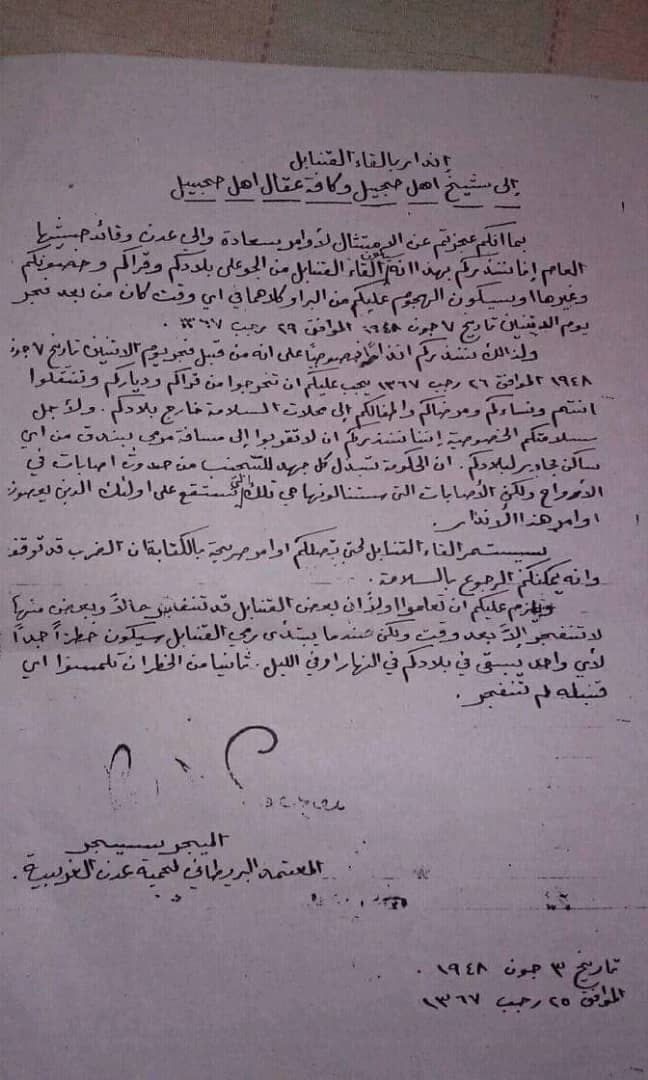 إنذار بالقاء القنابل
إلى شيخ اهل حجيل وكافة عقال اهل حجيل
بما انكم عجزتم عن الامتثال لأوامر سعادة والي عدن وقائد جيشها
العام إننا ننذركم بهذا انه سيكون القاء القنابل من الجو على بلادكم وقراكم وحصونكم
وغيرها اوسيكون الهجوم عليكم من البر او كلاهما في اي وقت كان من بعد فجر
يوم الاثنين تاريخ ٧ جون ١٩٤٨ الموافق ٢٩ رجب ١٣٦٧ .
ولذالك ننذركم انذاراً خصوصياً على انه من قبل فجر يوم الاثنين تاريخ ٧ جون
١٩٤٨ الموافق ٢٦ رجب ١٣٦٧ يجب عليكم ان تخرجوا من قراكم ودياركم وتنتقلوا
انتم ونساءكم ومرضاكم واطفالكم إلى محلات السلامة خارج بلادكم . ولأجل
سلامتكم الخصوصية إننا ننذركم ان لا تقربوا إلى مسافة مرمى بندق من أي
ساكن مجاور لبلادكم . ان الحكومة تبذل كل جهد للتجنب من حدوث اصابات في
الأرواح ولكن الأصابات التي ستنالونها هي تلك التي ستقع على اولئك الذين يعصون
اوامر هذا الأنذار .
سيستمر القاء القنابل لحتى تصلكم اوامر صريحة بالكتابة ان الضرب قد توقف
وانه يمكنكم الرجوع بالسلامة .
ويلزم عليكم ان تعلموا اولاً ان بعض القنابل قد تنفجر حالاً وبعض منها
لا تنفجر الا بعد وقت ولكن عندما يبتدى رمي القنابل سيكون خطراً جداً
لأي واحد يبقى في بلادكم في النهار او في الليل . ثانيا من الخطر ان تلمسوا اي
قنبله لم تنفجر .
الميجر سيجر
المعتمد البريطاني لمحمية عدن الغربية .
تاريخ ٣ جون ١٩٤٨ .
الموافق ٢٥ رجب ١٣٦٧